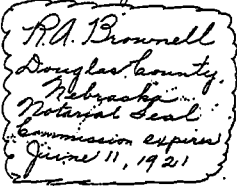 R.A. Brownell
Douglas County,
Nebraska
Notarial Seal
Commission expires
June 11, 1921